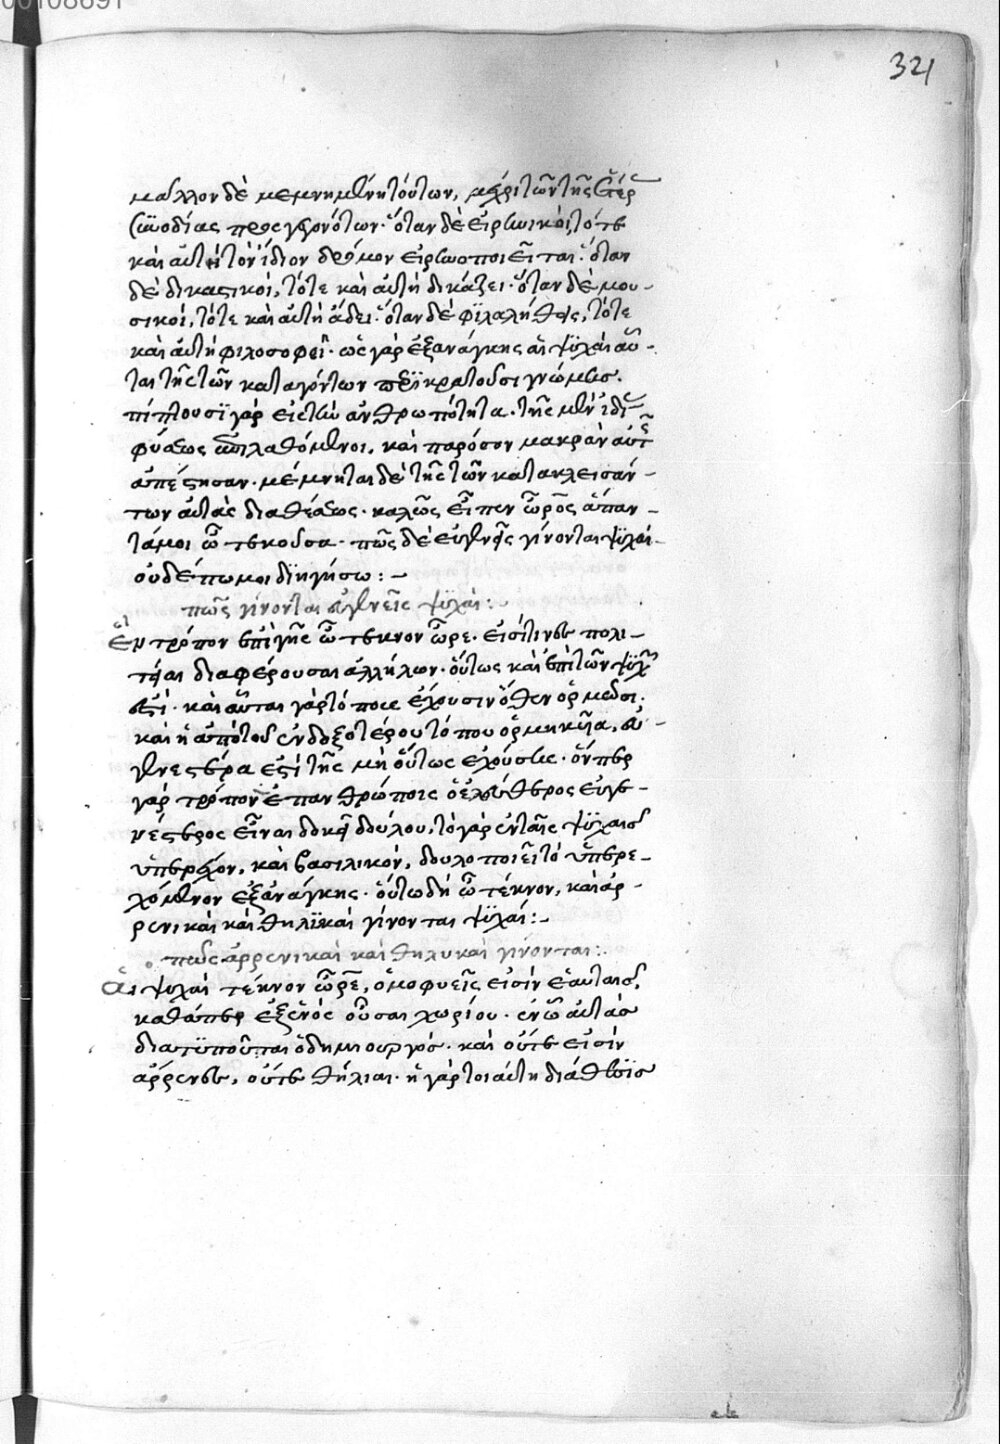 321
μᾶλλον δὲ μεμνημένη τούτων, μέχρι τῶν τῆς
προσγειονότων· ὅταν δὲ εἰρηνικοί, τότε
καὶ αὐτὴ τὸν ἴδιον δρόμον εἰρηνοποιεῖται· ὅταν
δὲ δικαστικοί, τότε καὶ αὐτὴ δικάζει· ὅταν δὲ μου-
σικοί, τότε καὶ αὐτὴ ἄδει· ὅταν δὲ φιλαλήθεις, τότε
καὶ αὐτὴ φιλοσοφεῖ· ὡς γὰρ ἐξανάγκης αἱ ψυχαὶ αὗ-
ται τῆς τῶν καταγόντων κρατοῦσι γνώμης.
πίπτουσι γὰρ εἰς τὴν ἀνθρωπότητα· τῆς μὲν ἰδίας
φύσεως ἐπιλαθόμεναι, καὶ παρόσον μακρὰν αὐτῆς
ἀπέστησαν· μέμνηται δὲ τῆς τῶν κατακλεισάν-
των αὐτὰς διαθέσεως· καλῶς εἶπεν ὦρος ἅπαν-
τά μοι ὦ τεκοῦσα· πῶς δὲ εὐγενεῖς γίνονται ψυχαὶ
οὐδέπω μοι διηγήσω:-
πῶς γίνονται εὐγενεῖς ψυχαί:
Ὃν τρόπον ἐπὶ γῆς ὦ τέκνον ὦρε· εἰσί τινες πολι-
τεῖαι διαφέρουσαι ἀλλήλων· οὕτως καὶ ἐπὶ τῶν ψυχῶν
ἐστί· καὶ αὗται γὰρ τόπους ἔχουσιν ὅθεν ὁρμῶσι·
καὶ ἡ ἀπὸ τοῦ ἐνδοξοτέρου τόπου ὁρμηκυῖα, εὐ-
γενεστέρα ἐστί τῆς μὴ οὕτως ἐχούσης· ὅνπερ
γὰρ τρόπον ἐπ ανθρώποις ὁ ἐλεύθερος εὐγε-
νέστερος εἶναι δοκεῖ δούλου, τὸ γὰρ ἐν ταῖς ψυχαῖς
ὑπερέχον, καὶ βασιλικόν, δουλοποιεῖ τὸ ὑπερε-
χόμενον ἐξανάγκης· οὕτω δὴ ὦ τέκνον, καὶ ἀρ-
ρενικαὶ καὶ θηλϊκαὶ γίνονται ψυχαί:-
πῶς ἀρρενικαὶ καὶ θηλυκαὶ γίνονται:
Αἱ ψυχαὶ τέκνον ὦρε, ὁμοφυεῖς εἰσὶν ἑαυταῖς,
καθάπερ ἐξ ἑνὸς οὖσαι χωρίου· ἐν ᾧ αὐτὰς
διατυποῦται ὁ δημιουργός· καὶ οὔτε εἰσὶν
ἄρρενες, οὔτε θήλιαι· ἡ γὰρ τοιαύτη διάθεσις